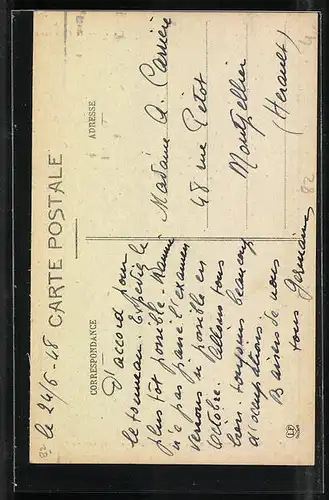 le 24/6-48
CARTE POSTALE
CORRESPONDANCE
ADRESSE
D'accord pour
le tonneau. Expédiez le
plus tôt possible.
n'a pas passé l'examen
Verrons si possible en
Octobre. Allons tous
bien toujours beaucoup
d'occupations
Baisers de nous
tous Germaine
Madame A. Carrière
48 rue Pitot
Montpellier
(Herault)
82
82